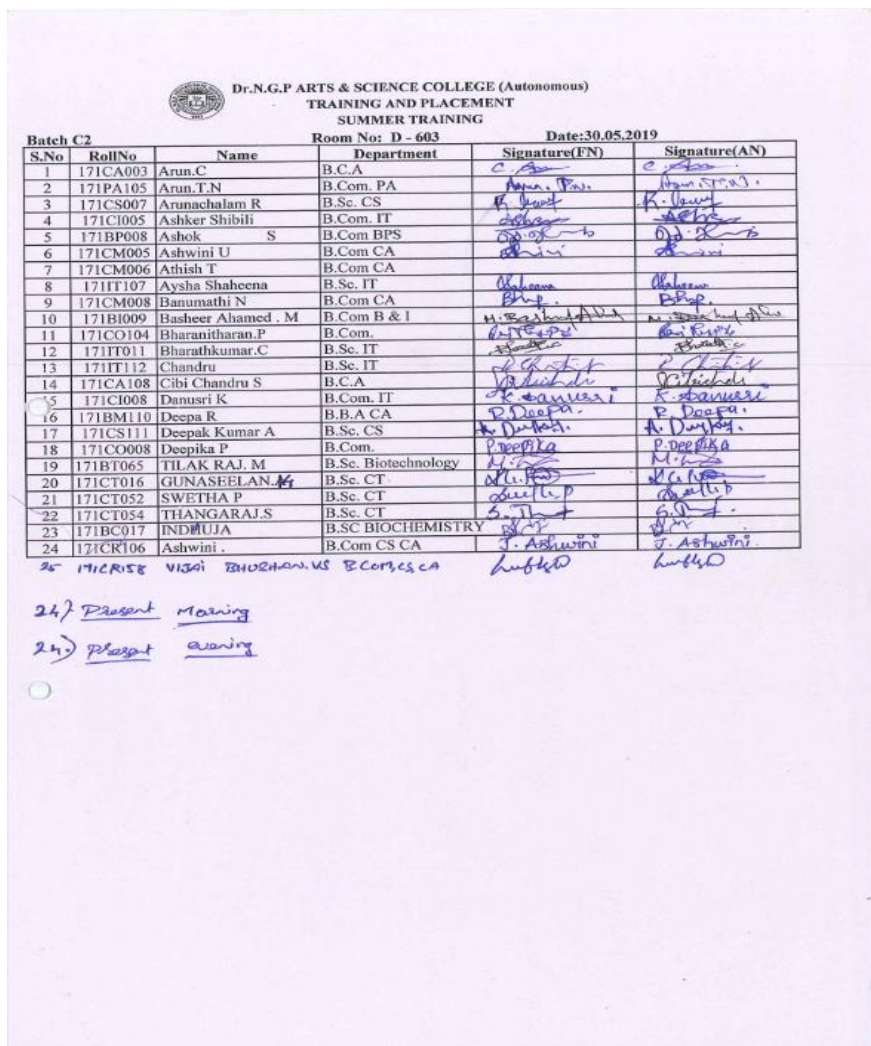 Dr.N.G.P ARTS & SCIENCE COLLEGE (Autonomous)
TRAINING AND PLACEMENT
SUMMER TRAINING
Batch C2 Room No: D - 603 Date:30.05.2019
S.No RollNo Name Department Signature(FN) Signature(AN)
1 171CA003 Arun.C B.C.A
2 171PA105 Arun.T.N B.Com. PA
3 171CS007 Arunachalam R B.Sc. CS
4 171CI005 Ashker Shibili B.Com. IT
5 171BP008 Ashok S B.Com BPS
6 171CM005 Ashwini U B.Com CA
7 171CM006 Athish T B.Com CA
8 171IT107 Aysha Shaheena B.Sc. IT
9 171CM008 Banumathi N B.Com CA
10 171BI009 Basheer Ahamed . M B.Com B & I
11 171CO104 Bharanitharan.P B.Com.
12 171IT011 Bharathkumar.C B.Sc. IT
13 171IT112 Chandru B.Sc. IT
14 171CA108 Cibi Chandru S B.C.A
15 171CI008 Danusri K B.Com. IT K. Danusri K. Danusri
16 171BM110 Deepa R B.B.A CA R. Deepa. R. Deepa.
17 171CS111 Deepak Kumar A B.Sc. CS
18 171CO008 Deepika P B.Com. P. Deepika P. Deepika
19 171BT065 TILAK RAJ. M B.Sc. Biotechnology
20 171CT016 GUNASEELAN. B.Sc. CT
21 171CT052 SWETHA P B.Sc. CT
22 171CT054 THANGARAJ.S B.Sc. CT
23 171BC017 INDHUJA B.SC BIOCHEMISTRY
24 171CR106 Ashwini . B.Com CS CA J. Ashwini J. Ashwini.
25 171CR158 VIJAI BHUSHAN.VS B.COM,CS,CA
24) Present Morning
24.) Present evening